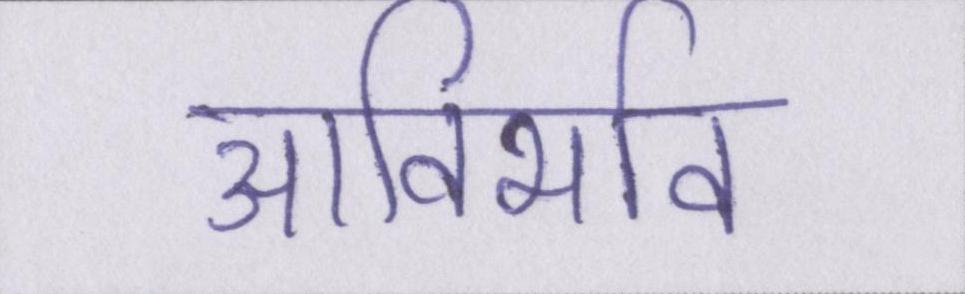 आविर्भाव